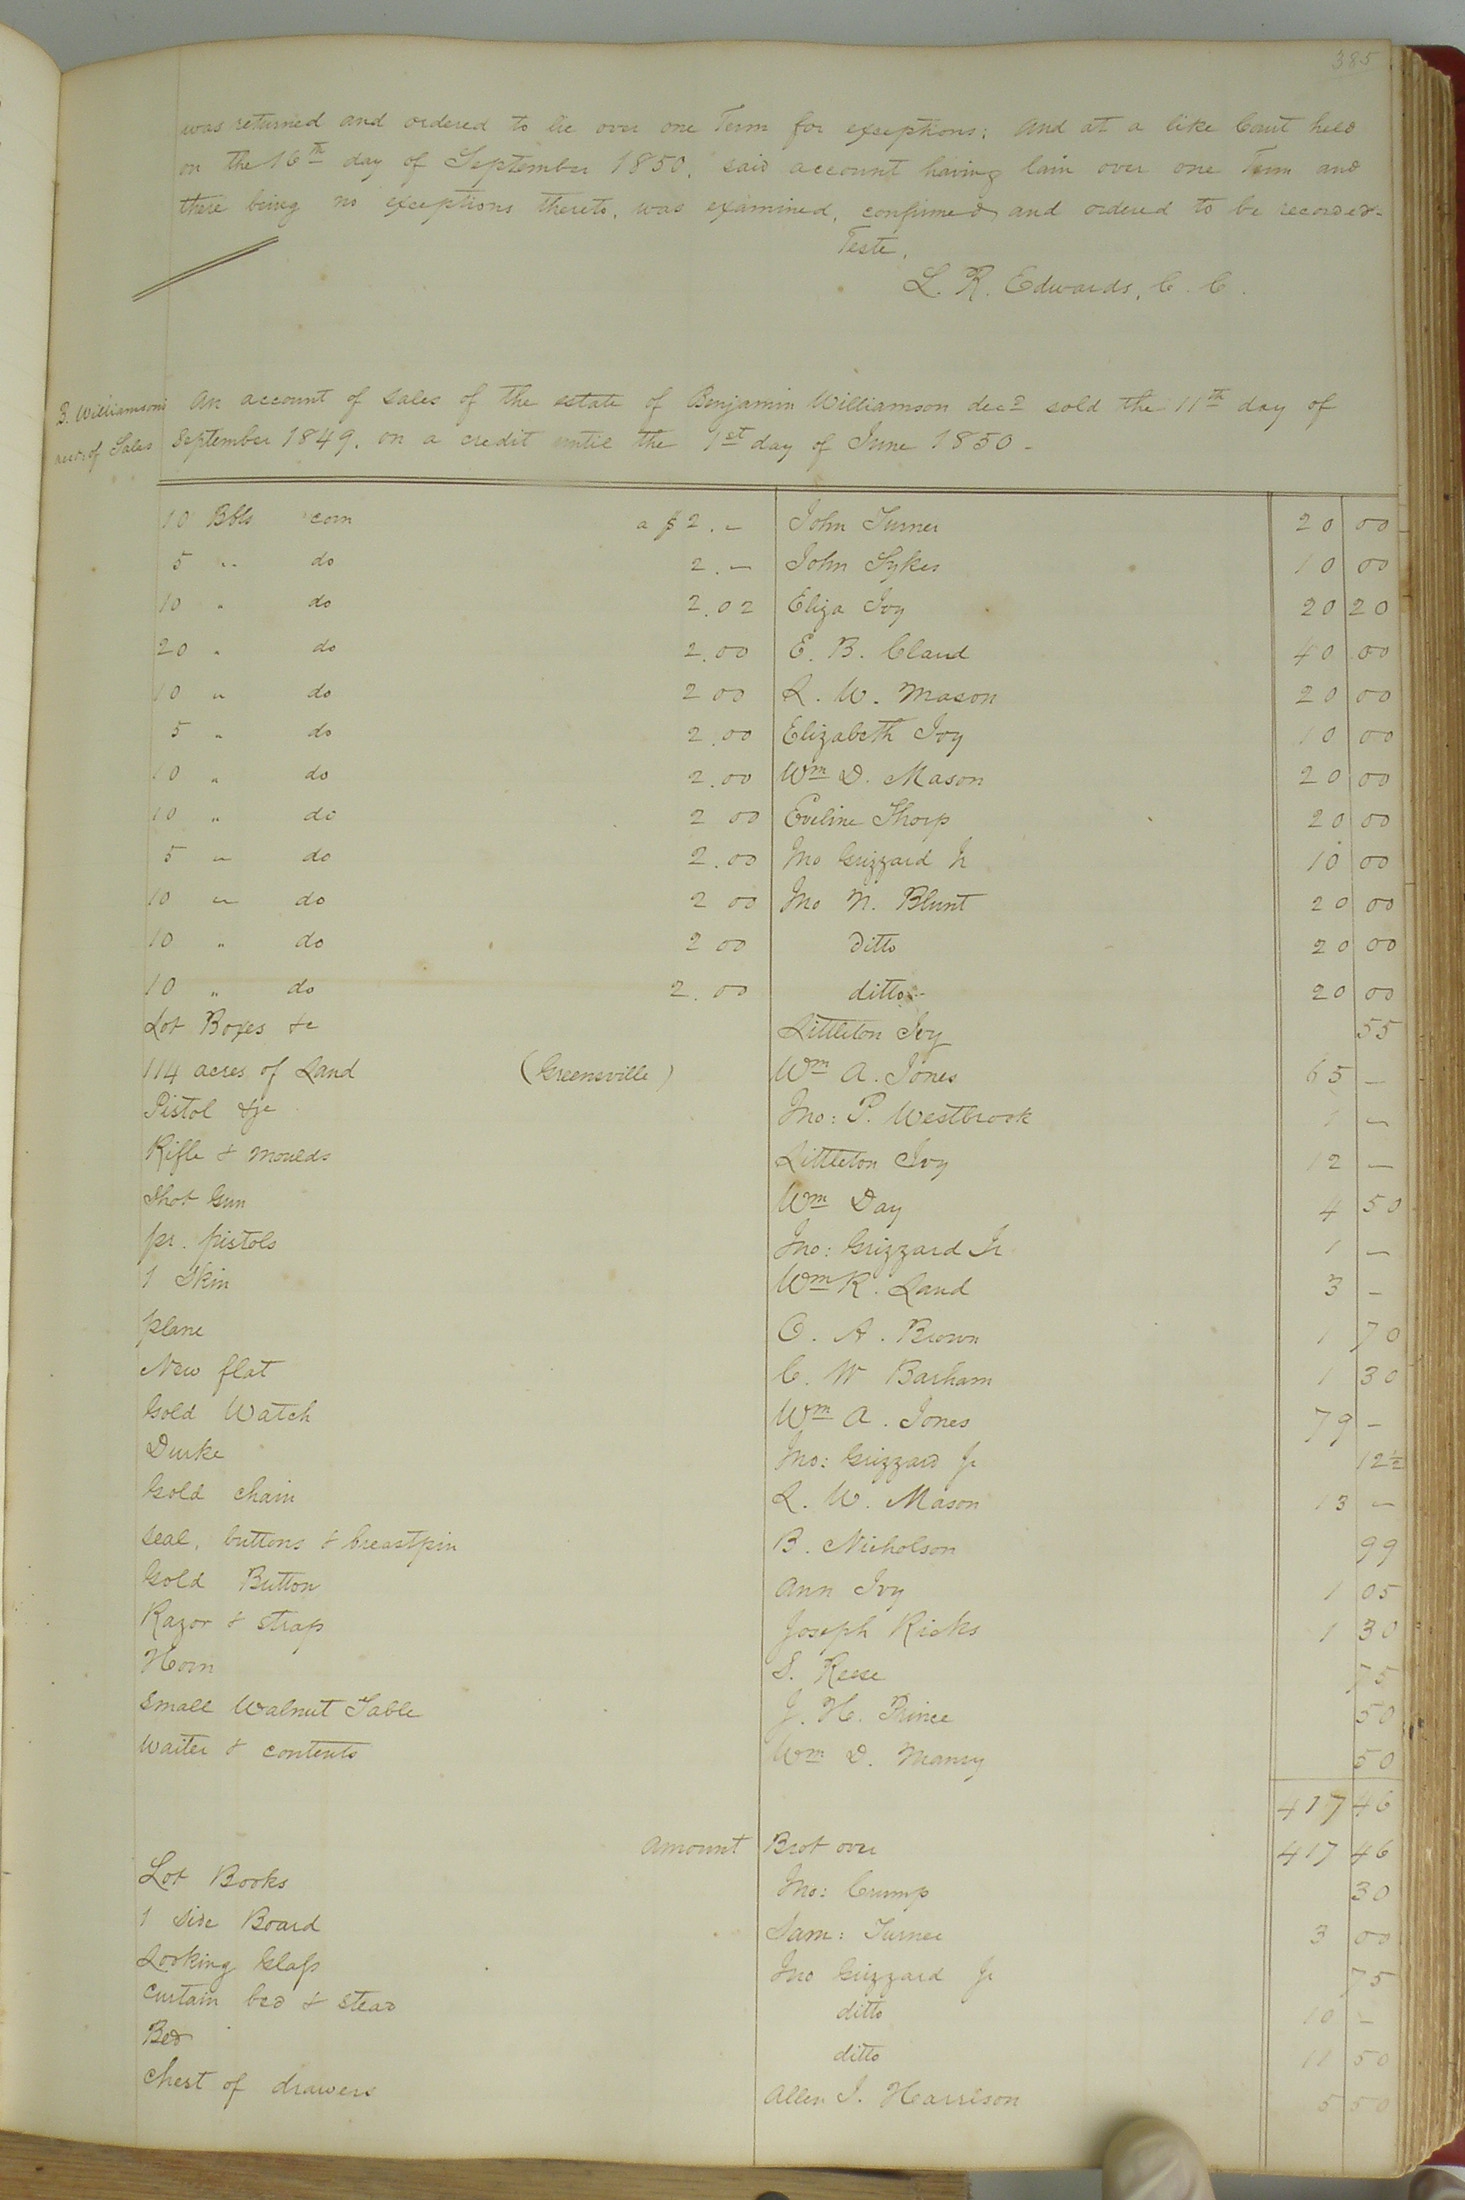 385
was returned and ordered to lie over one Term for exceptions; and at a like Court held
on the 16th day of September 1850, said account having lain over one Term and
there being no exceptions thereto, was examined, confirmed and ordered to be recorded.
Teste,
L. R. Edwards, C. C.
B. Williamson's An account of sales of the estate of Benjamin Williamson decd sold the 11th day of
acct of Sales September 1849, on a credit until the 1st day of June 1850 -
10 Bbls corn a $2.- John Turner 20 00
5 " do 2.- John Sykes 10 00
10 " do 2.02 Eliza Ivy 20 20
20 " do 2.00 E. B. Claud 40 00
10 " do 2 00 L. W. Mason 20 00
5 " do 2.00 Elizabeth Ivy 10 00
10 " do 2.00 Wm D. Mason 20 00
10 " do 2 00 Eveline Thorp 20 00
5 " do 2.00 Jno Grizzard Jr 10 00
10 " do 2 00 Jno N. Blunt 20 00
10 " do 2 00 Ditto 20 00
10 " do 2.00 ditto 20 00
Lot Boxes &c Littleton Ivy 55
114 acres of Land (Greensville) Wm A. Jones 65 -
Pistol &c Jno: P. Westbrook 1 -
Rifle & moulds Littleton Ivy 12 -
Shot Gun Wm Day 4 50
pr. pistols Jno: Grizzard Jr 1 -
1 Skin Wm R. Land 3 -
plane O. A. Brown 1 70
New flat C. W Barham 1 30
Gold Watch Wm A. Jones 79 -
Durke Jno: Grizzard Jr 12½
Gold chain L. W. Mason 13 -
Seal, buttons & breastpin B. Nicholson 99
Gold Button Ann Ivy 1 05
Razor & strap Joseph Ricks 1 30
Horn S. Reese 75
Small Walnut Table J. H. Prince 50
Waiter & contents Wm D. Manry 50
417 46
Amount Brot over 417 46
Lot Books Jno: Crump 30
1 Side Board Sam: Turner 3 00
Looking Glass Jno Grizzard Jr 75
Curtain bed & stead ditto 10 -
Bed ditto 11 50
Chest of drawers Allen J. Harrison 5 50